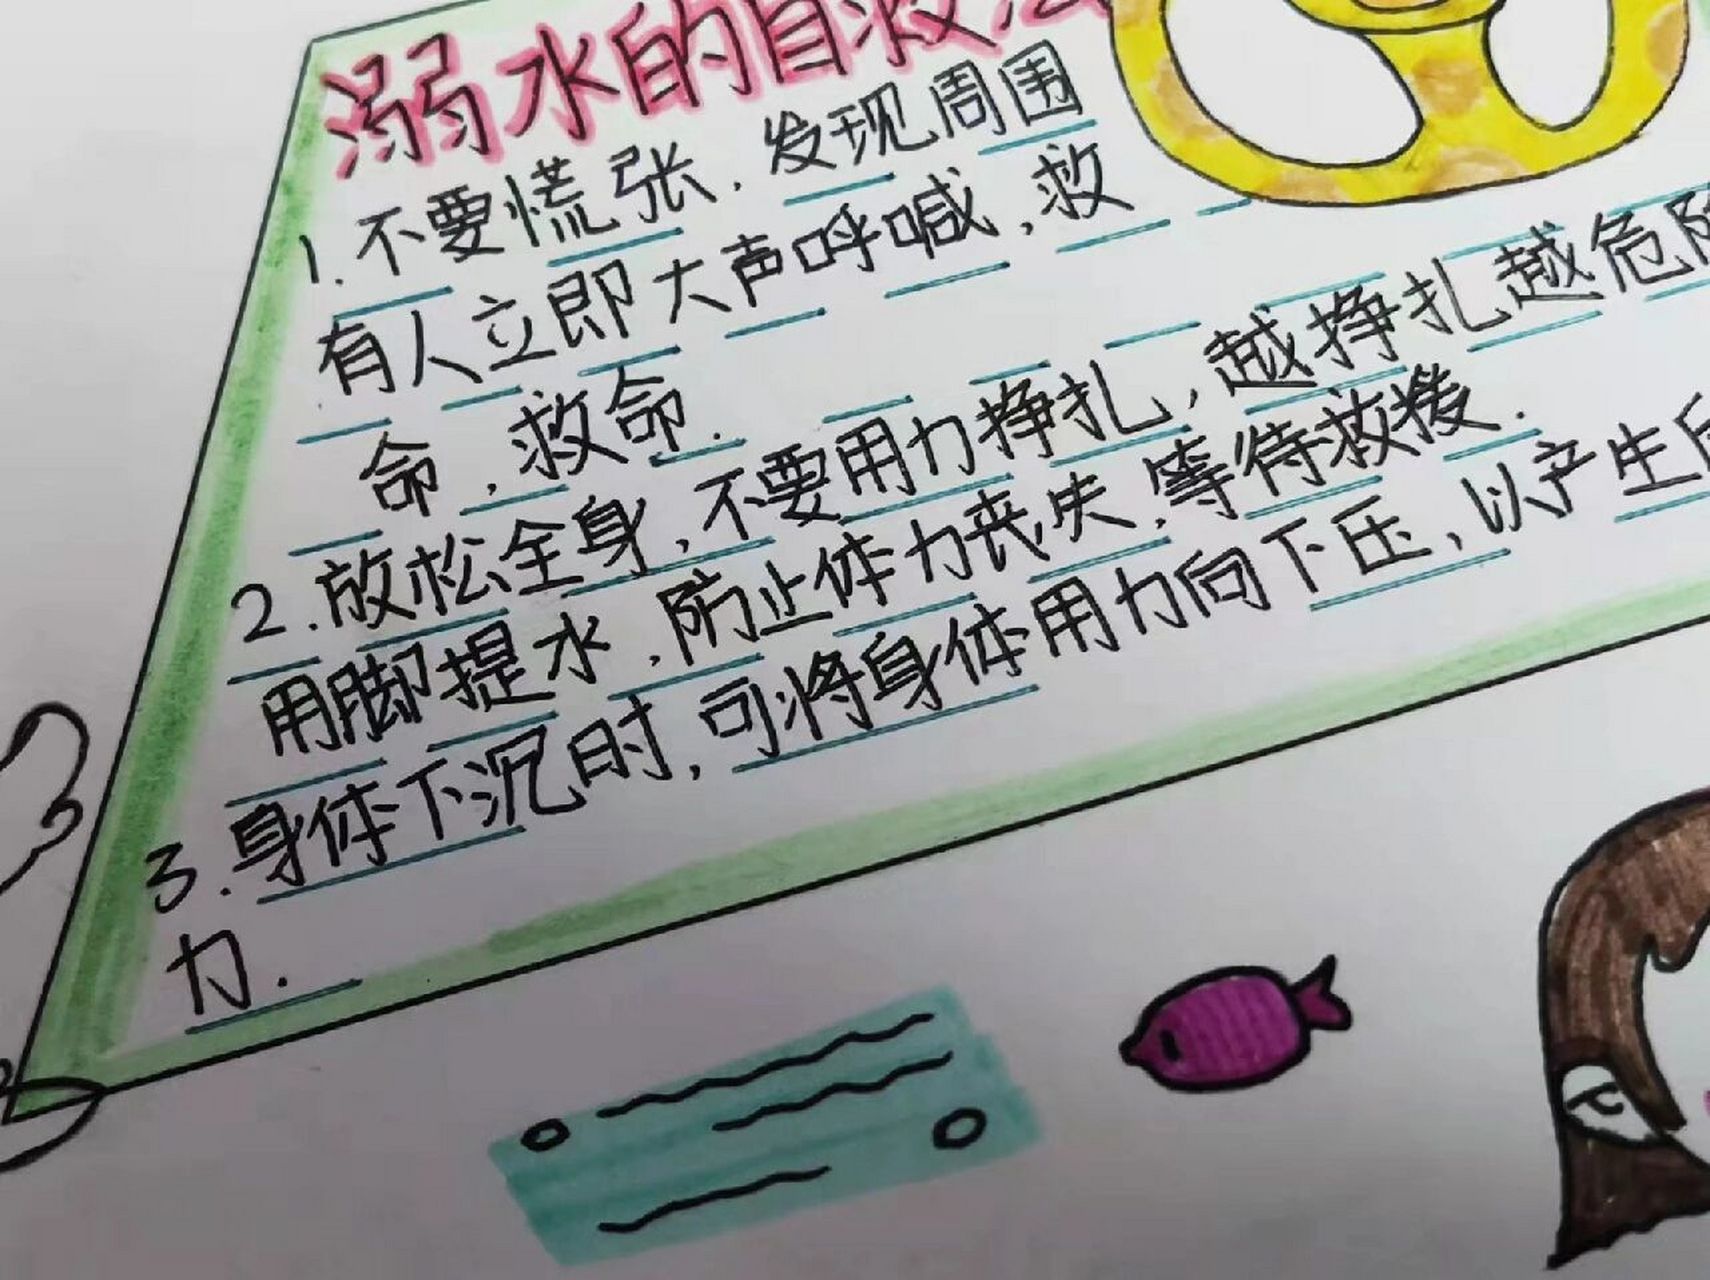 溺水的自救法
1.不要慌张.发现周围
有人立即大声呼喊,救
命,救命.
2.放松全身,不要用力挣扎,越挣扎越危险
用脚提水.防止体力丧失.等待救援.
3.身体下沉时,可将身体用力向下压,以产生
力.